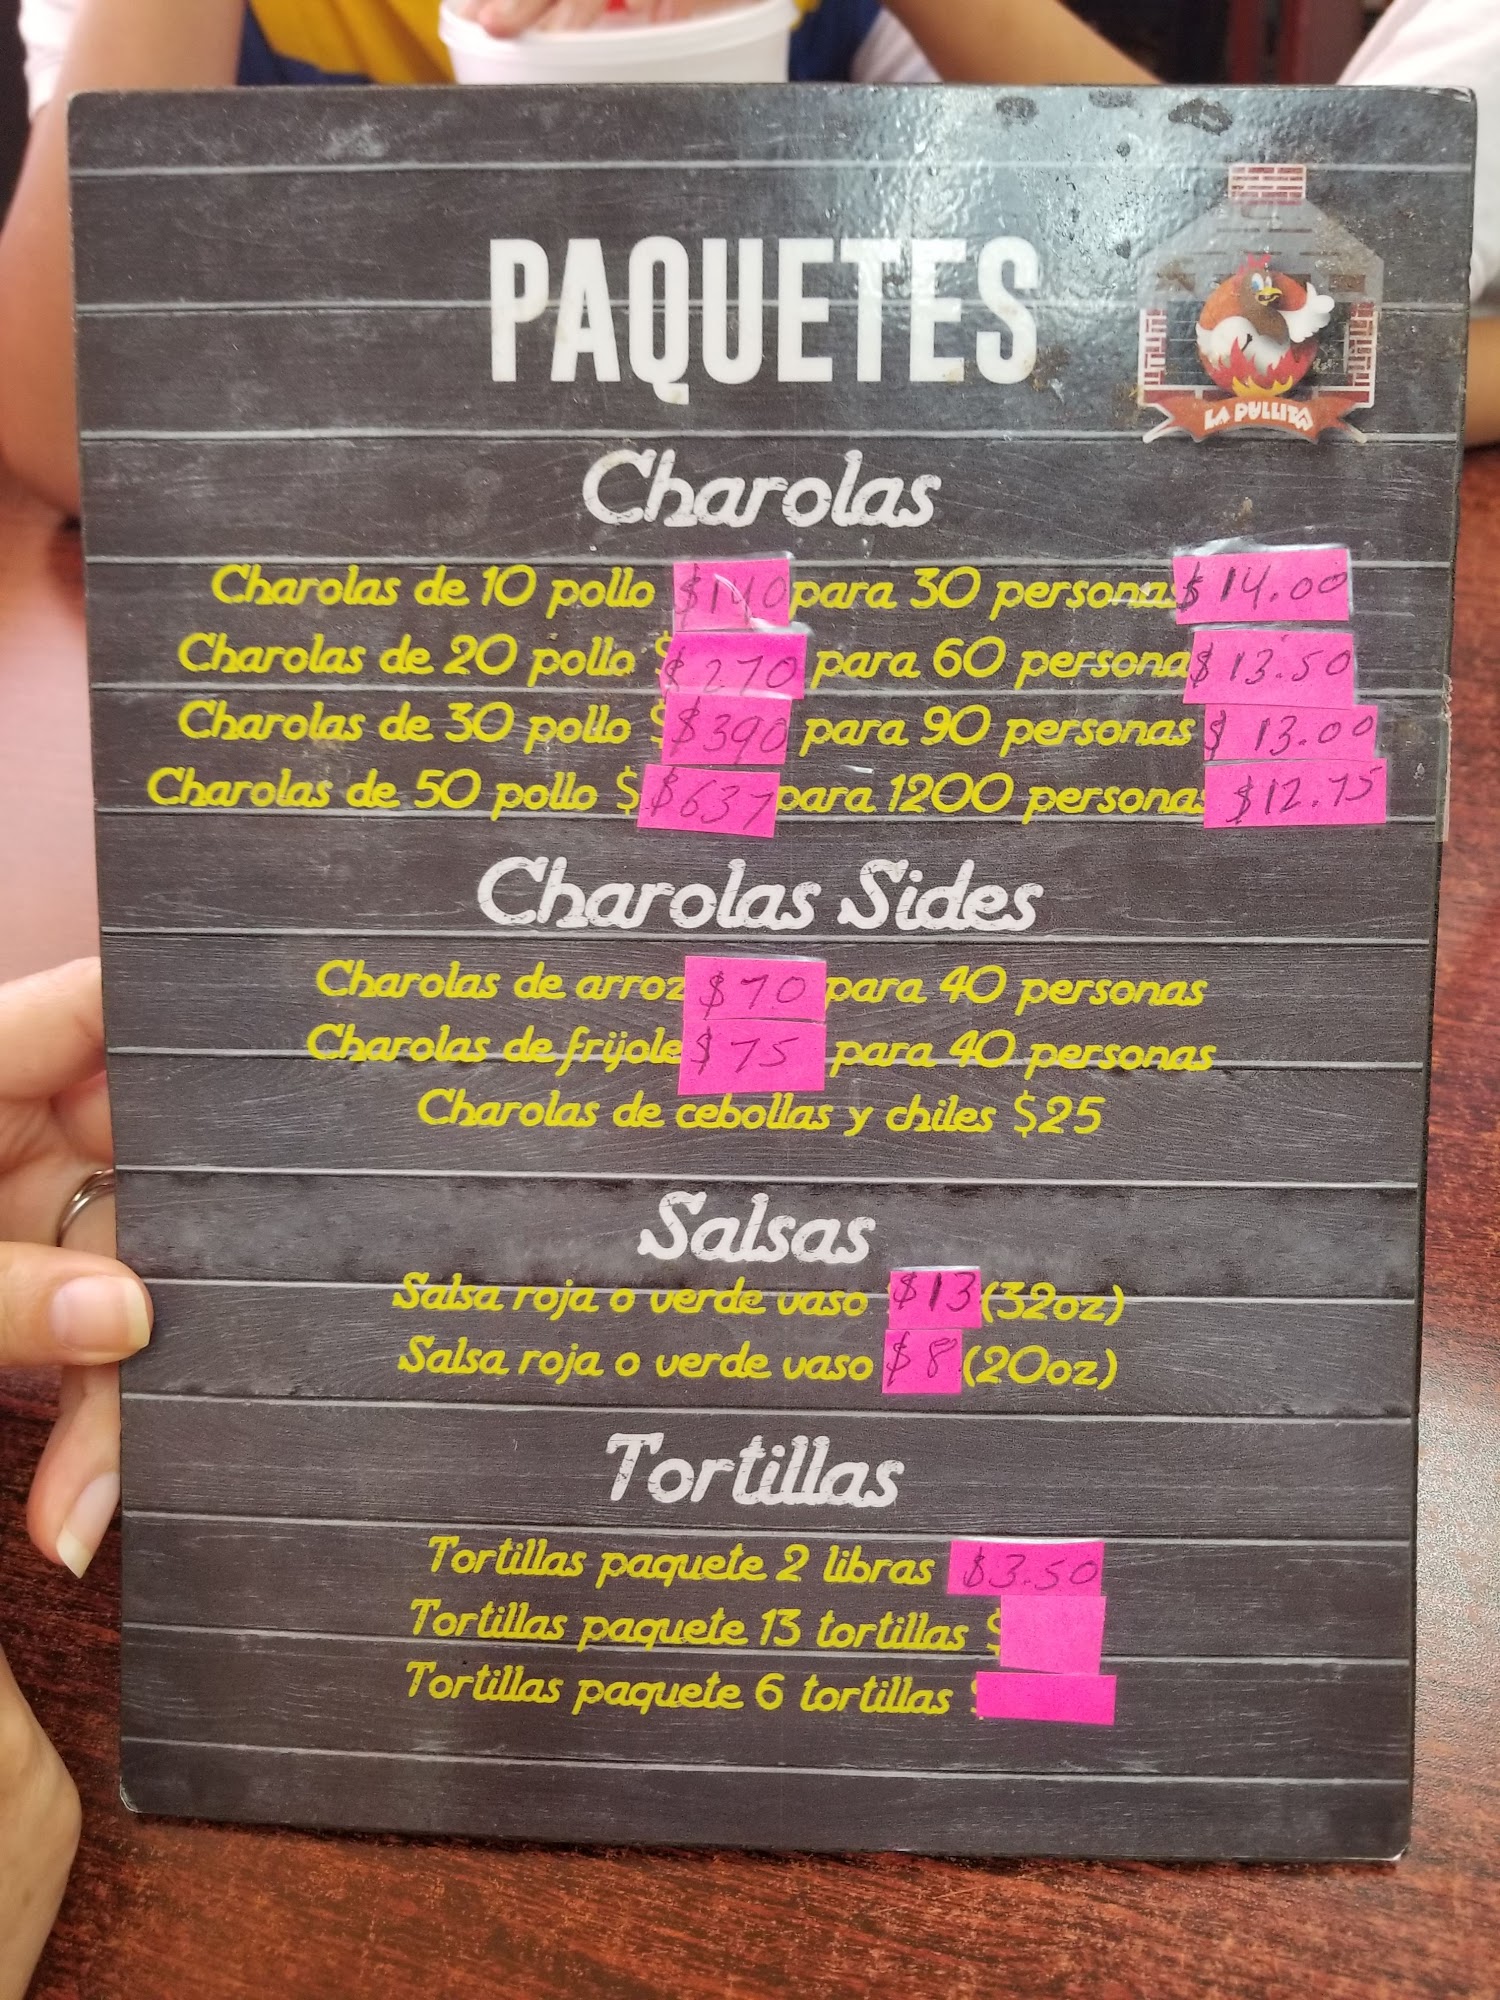 PAQUETES
LA PULLITA
Charolas
Charolas de 10 pollo $140 para 30 personas $14.00
Charolas de 20 pollo $ $270 para 60 persona $13.50
Charolas de 30 pollo $ $390 para 90 personas $13.00
Charolas de 50 pollo $ $637 para 1200 personas $12.75
Charolas Sides
Charolas de arroz $70 para 40 personas
Charolas de frijole $75 para 40 personas
Charolas de cebollas y chiles $25
Salsas
Salsa roja o verde vaso $13 (32oz)
Salsa roja o verde vaso $8 (20oz)
Tortillas
Tortillas paquete 2 libras $3.50
Tortillas paquete 13 tortillas $
Tortillas paquete 6 tortillas $